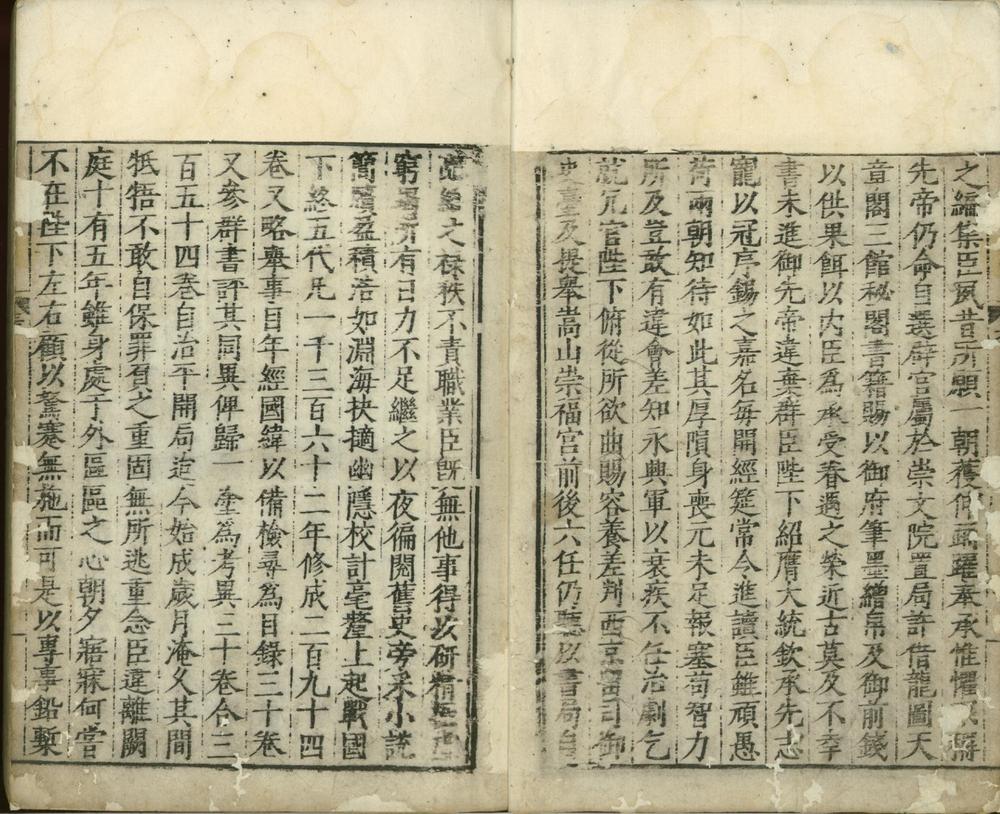 之編集臣夙昔所願一朝獲伸踊躍奉承惟懼不稱
先帝仍命自選辟官屬於崇文院置局許借龍圖天
章閣三館秘閣書籍賜以御府筆墨繒帛及御前錢
以供果餌以內臣爲承受眷遇之榮近古莫及不幸
書未進御先帝違棄群臣陛下紹膺大統欽承先志
寵以冠序錫之嘉名每開經筵常令進讀臣雖頑愚
荷兩朝知待如此其厚隕身喪元未足報塞苟智力
所及豈敢有違會差知永興軍以衰疾不任治劇乞
就冗官陛下俯從所欲曲賜容養差判西京留司御
史臺及提舉嵩山崇福宮前後六任仍聽以書局自
之祿秩不責職業臣旣無他事得以研精
窮竭所有日力不足繼之以夜徧閱舊史旁采小說
簡牘盈積浩如淵海抉擿幽隱校計毫釐上起戰國
下終五代凡一千三百六十二年修成二百九十四
卷又略舉事目年經國緯以備檢尋爲目錄三十卷
又參群書評其同異俾歸一塗爲考異三十卷合三
百五十四卷自治平開局迨今始成歲月淹久其間
牴牾不敢自保罪負之重固無所逃重念臣違離闕
庭十有五年雖身處于外區區之心朝夕寤寐何嘗
不在陛下左右顧以駑蹇無施而可是以專事鉛槧